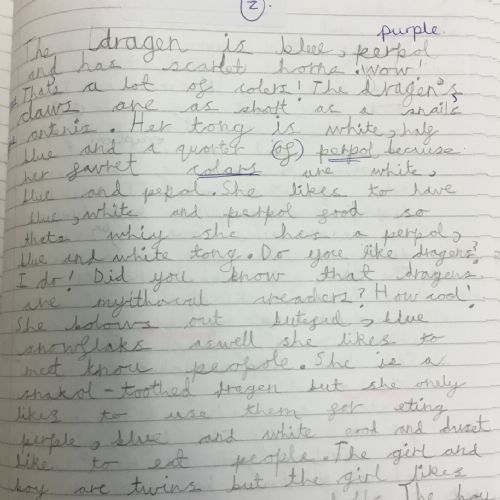 2.
purple.
The dragen is blue, perpol
and has scarlet horns. wow!
That's a lot of colers! The dragen's
claws are as shaft as a snail's
antenis. Her tong is white, half
blue and a quorter (of) perpol because
her favret colars are white,
blue and pepol. She likes to have
blue, white and perpol food so
thats whiy she has a perpol,
blue and white tong. Do you like dragens?
I do! Did you know that dragens
are mythacal creachers? How cool!
She bolows out buteful, blue
snowflaks aswell she likes to
meet knou people. She is a
shakol-toothed dragen but she only
likes to use them for eting
purple, blue and white food and duset
like to eat people. The girl and
boy are twins but the girl likes
The boy